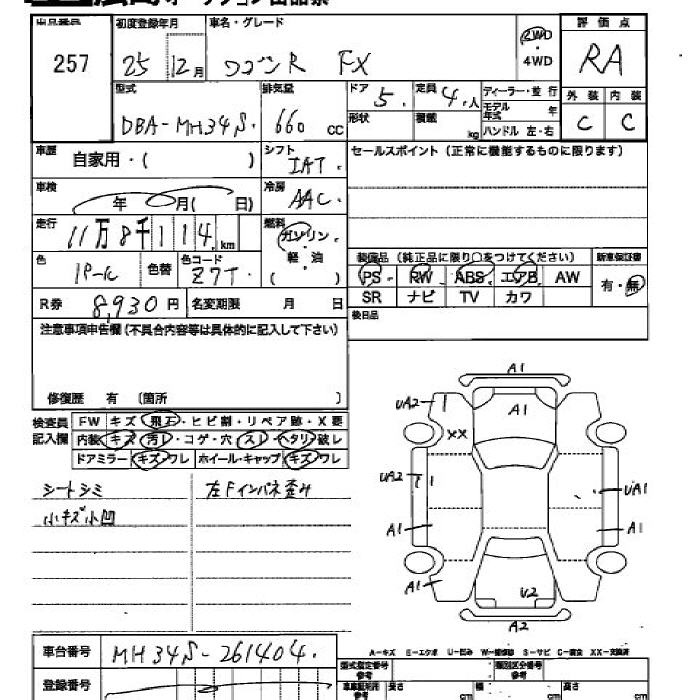 出品番号 初度登録年月 車名・グレード 評価点
257 25 12月 ワゴンR FX 2WD・4WD RA
型式 排気量 ドア 5. 定員 4.人 ディーラー・並行 外装 内装
DBA-MH34S. 660 cc 形状 積載 kg モデル年式 年 C C
ハンドル 左・右
車歴 自家用・( ) シフト IAT. セールスポイント(正常に機能するものに限ります)
車検 年 月( 日) 冷房 AAC.
走行 11万8千114. km 燃料 ガソリン・軽・油 ( )
装備品(純正品に限り○をつけてください) 新車保証書
色 パール 色替 色コード Z7T. PS RW ABS エアB AW 有・無
SR ナビ TV カワ
R券 8,930円 名変期限 月 日 後日品
注意事項申告欄(不具合内容等は具体的に記入して下さい)
修復歴 有 〔箇所 〕
検査員記入欄 FW キズ・飛石・ヒビ割・リペア跡・X要
内装 キズ 汚レ・コゲ・穴 スレ・ヘタリ 破レ
ドアミラー キズ ワレ ホイール・キャップ キズ ワレ
シートシミ 左Fインパネ歪み
小キズ小凹
A1
UA2 A1
XX
UA2 UA1
A1 A1
A1 U2
A2
A-キズ E-エクボ U-凹み W-補修跡 S-サビ C-腐食 XX-交換済
車台番号 MH34S-261404.
型式指定番号 参考 類別区分番号 参考
登録番号 車車証記用 参考 長さ cm 幅 cm 高さ cm